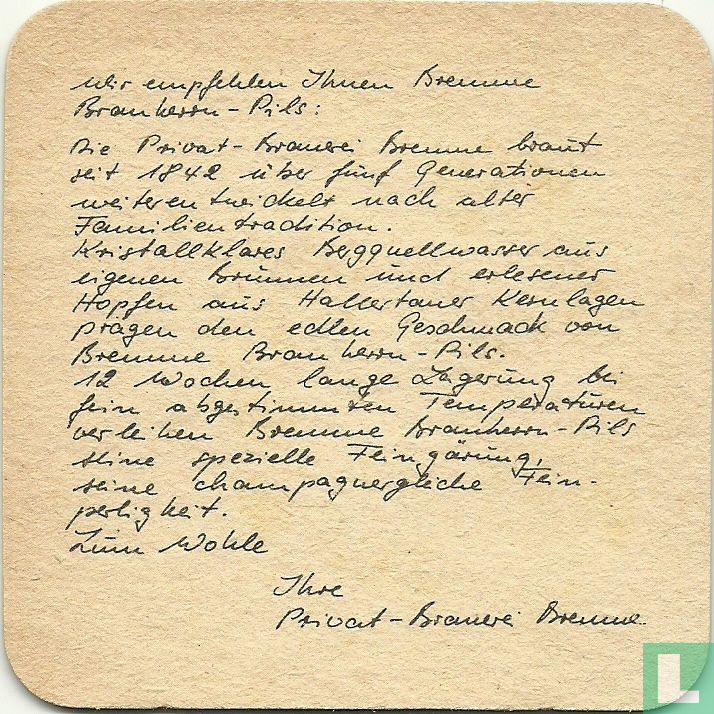 Wir empfehlen Ihnen Bremme
Brauherrn-Pils:
Die Privat-Brauerei Bremme braut
seit 1842 über fünf Generationen
weiterentwickelt nach alter
Familientradition.
Kristallklares Bergquellwasser aus
eigenen Brunnen und erlesener
Hopfen aus Hallertauer Kernlagen
prägen den edlen Geschmack von
Bremme Brauherrn-Pils.
12 Wochen lange Lagerung bei
fein abgestimmten Temperaturen
verleihen Bremme Brauherrn-Pils
seine spezielle Feingärung,
seine champagnergleiche Fein-
perligkeit.
Zum Wohle
Ihre
Privat-Brauerei Bremme
L